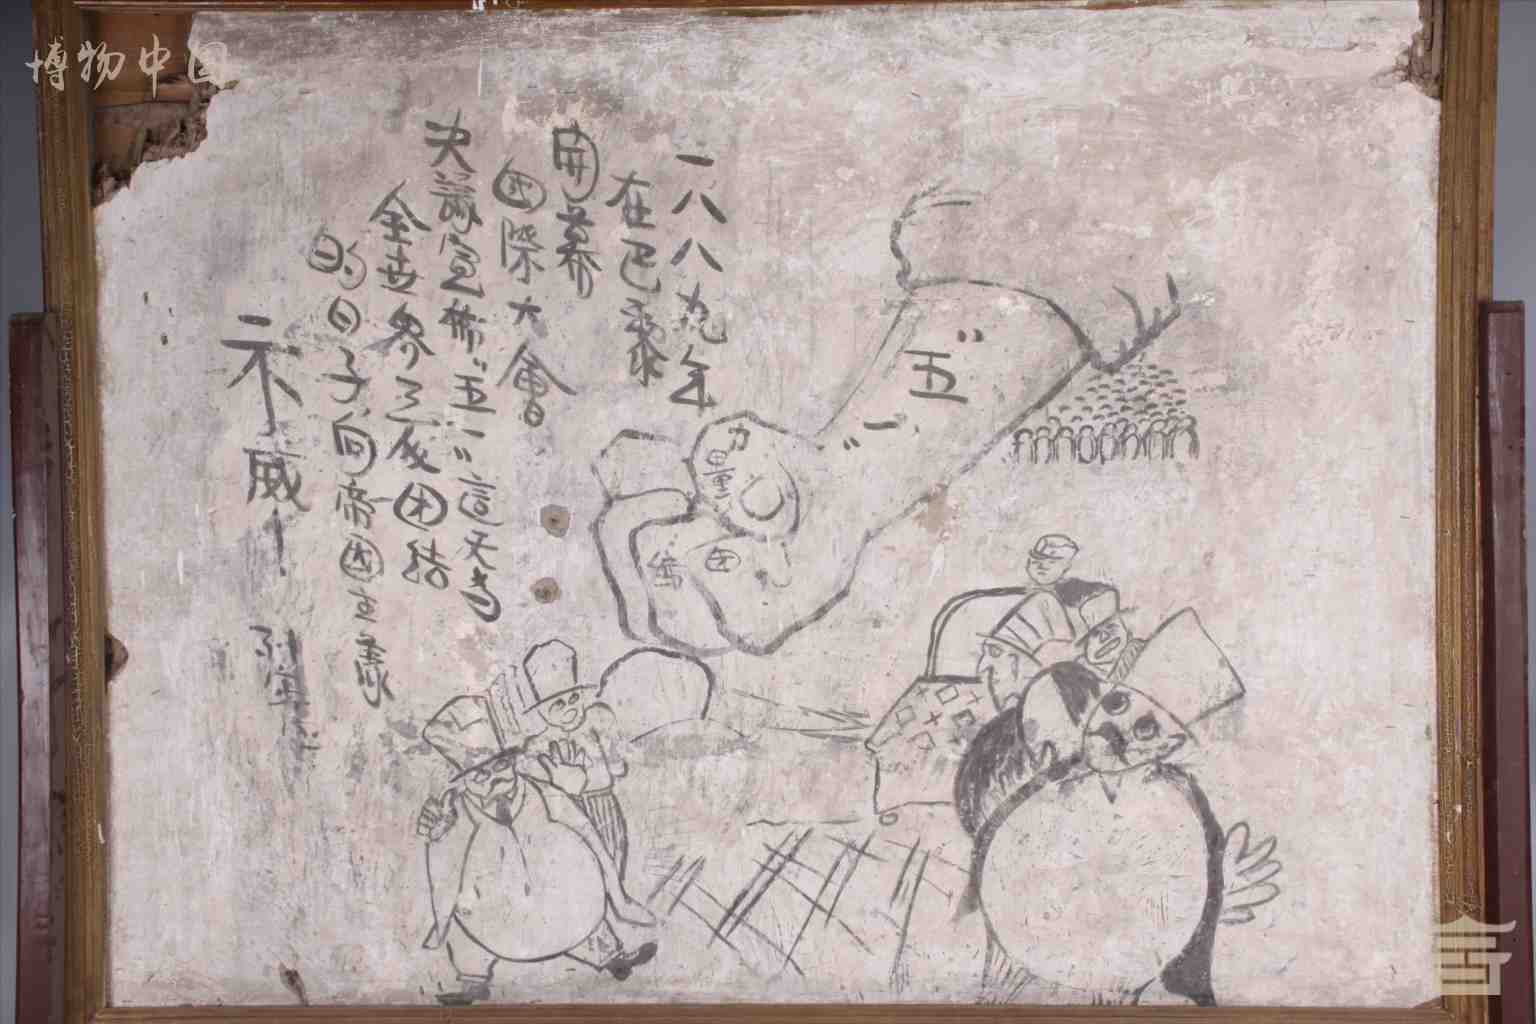 博物中国
一八八九年
在巴黎
開幕
国際大會
決議宣佈"五一"這天為
全世界工友团結
的日子,向帝国主義
示威!
"五一"
力量
团